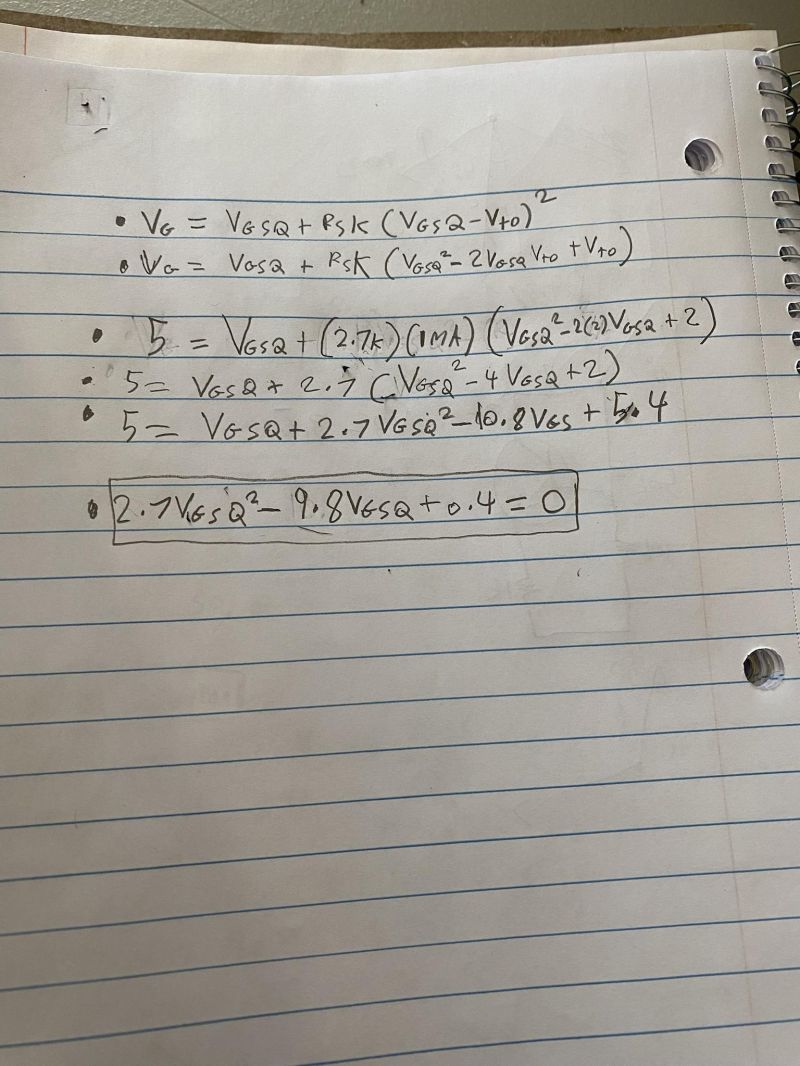 • VG = VGSQ + RSK (VGSQ - Vto)²
• VG = VGSQ + RSK (VGSQ² - 2VGSQ Vto + Vto)
• 5 = VGSQ + (2.7K)(1MA) (VGSQ² - 2(2)VGSQ + 2)
• 5 = VGSQ + 2.7 (VGSQ² - 4VGSQ + 2)
• 5 = VGSQ + 2.7VGSQ² - 10.8VGS + 5.4
• 2.7VGSQ² - 9.8VGSQ + 0.4 = 0